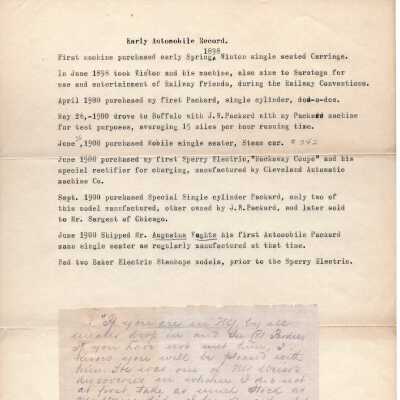 Early Automobile Record.
1898
First machine purchased early Spring, Winton single seated Carriage.
In June 1898 took Winton and his machine, also mine to Saratoga for
use and entertainment of Railway friends, during the Railway Conventions.
April 1900 purchased my first Packard, single cylinder, dos-a-dos.
May 26,-1900 drove to Buffalo with J.W.Packard with my Packard machine
for test purposes, averaging 15 miles per hour running time.
June, 1900 purchased Mobile single seater, Steam car. # 242
June 1900 purchased my first Sperry Electric, "Rockaway Coupe" and his
special rectifier for charging, manufactured by Cleveland Automatic
machine Co.
Sept. 1900 purchased Special Single cylinder Packard, only two of
this model manufactured, other owned by J.W.Packard, and later sold
to Mr. Sargest of Chicago.
June 1900 Shipped Mr. Augustus his first Automobile Packard
same single seater as regularly manufactured at that time.
Had two Baker Electric Stanhope models, prior to the Sperry Electric.
"If you are in NY by all
means drop in and see
If you have not met him, I
know you will be pleased with
him. He was one of
discoveries in whom I did not
at first take as much stock as